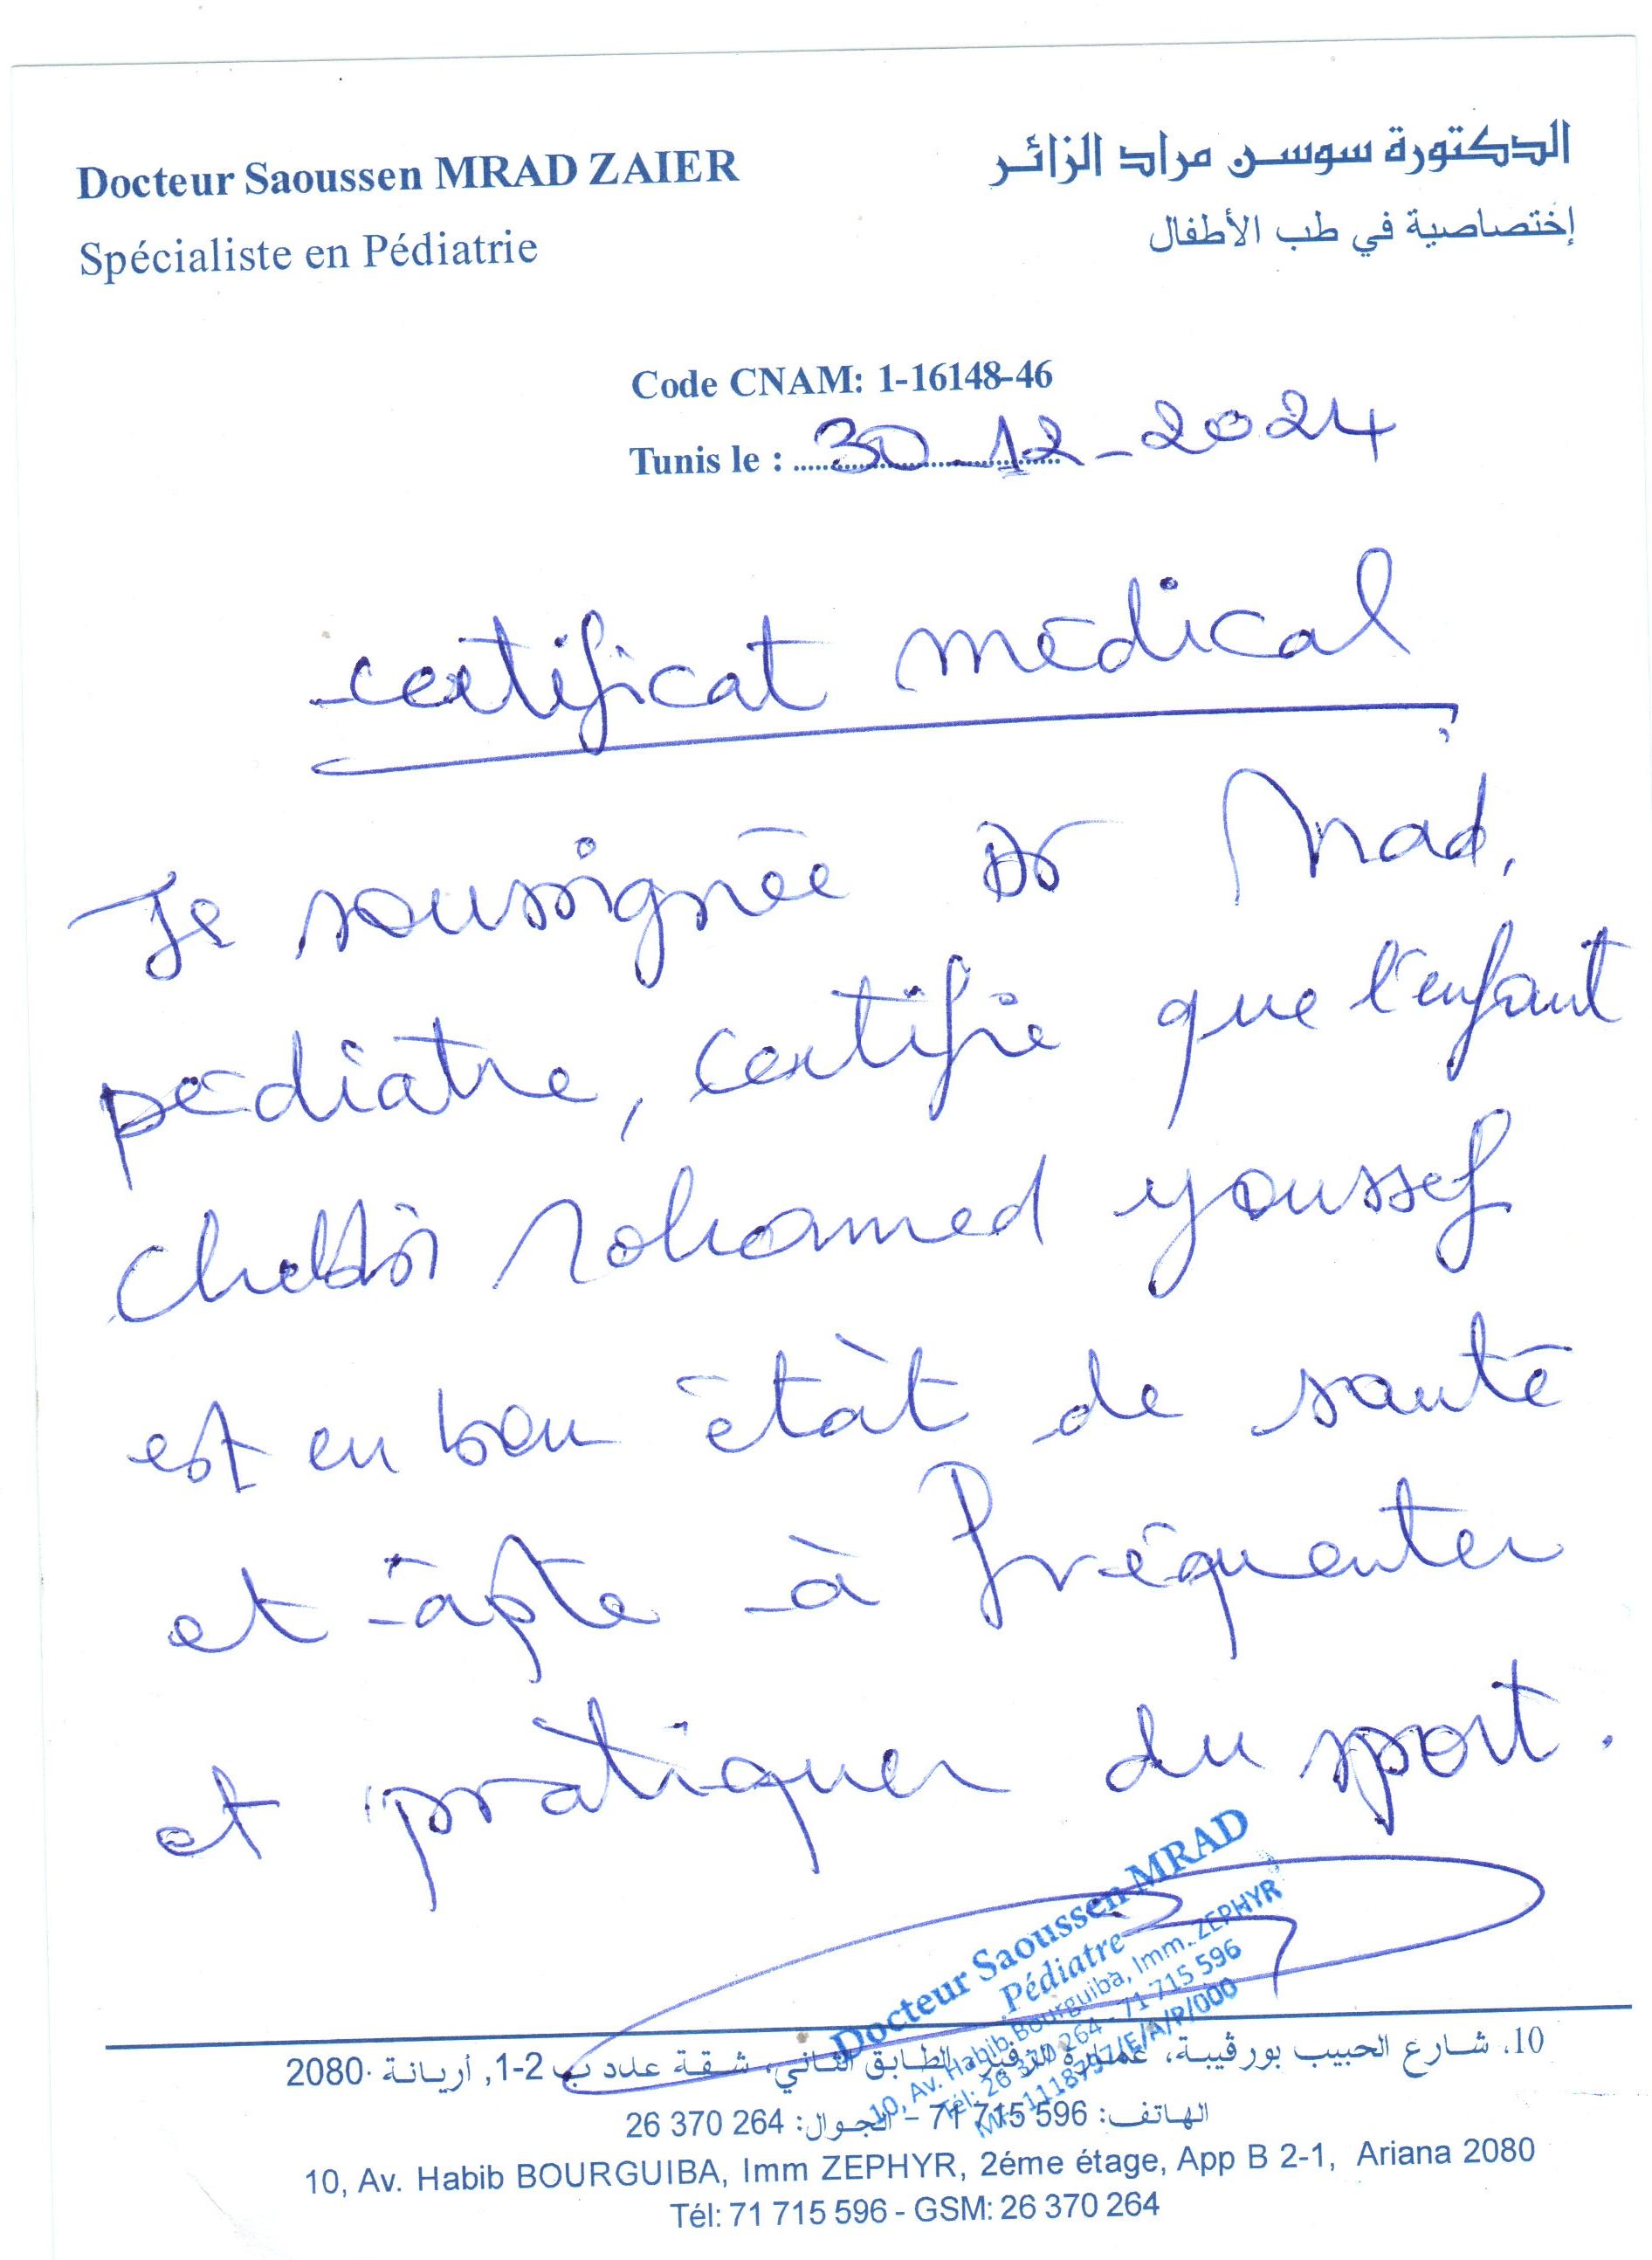 Docteur Saoussen MRAD ZAIER
الدكتورة سوسن مراد الزائر
Spécialiste en Pédiatrie
إختصاصية في طب الأطفال
Code CNAM: 1-16148-46
Tunis le : 30-12-2024
certificat médical
Je soussignée Dr Mrad,
pédiatre, certifie que l'enfant
Mohamed youssef
est en bon étàt de santé
et âpte à fréquenter
et pratiquer du sport.
Docteur Saoussen MRAD
Pédiatre
10, Av. Habib Bourguiba, Imm. ZEPHYR
Tél: 26 370 264 - 71 715 596
10، شارع الحبيب بورقيبة، عمارة الطابق الثاني، شقة عدد ب 2-1, أريانة 2080
الهاتف: 596 715 71 – الجوال: 264 370 26
10, Av. Habib BOURGUIBA, Imm ZEPHYR, 2éme étage, App B 2-1, Ariana 2080
Tél: 71 715 596 - GSM: 26 370 264